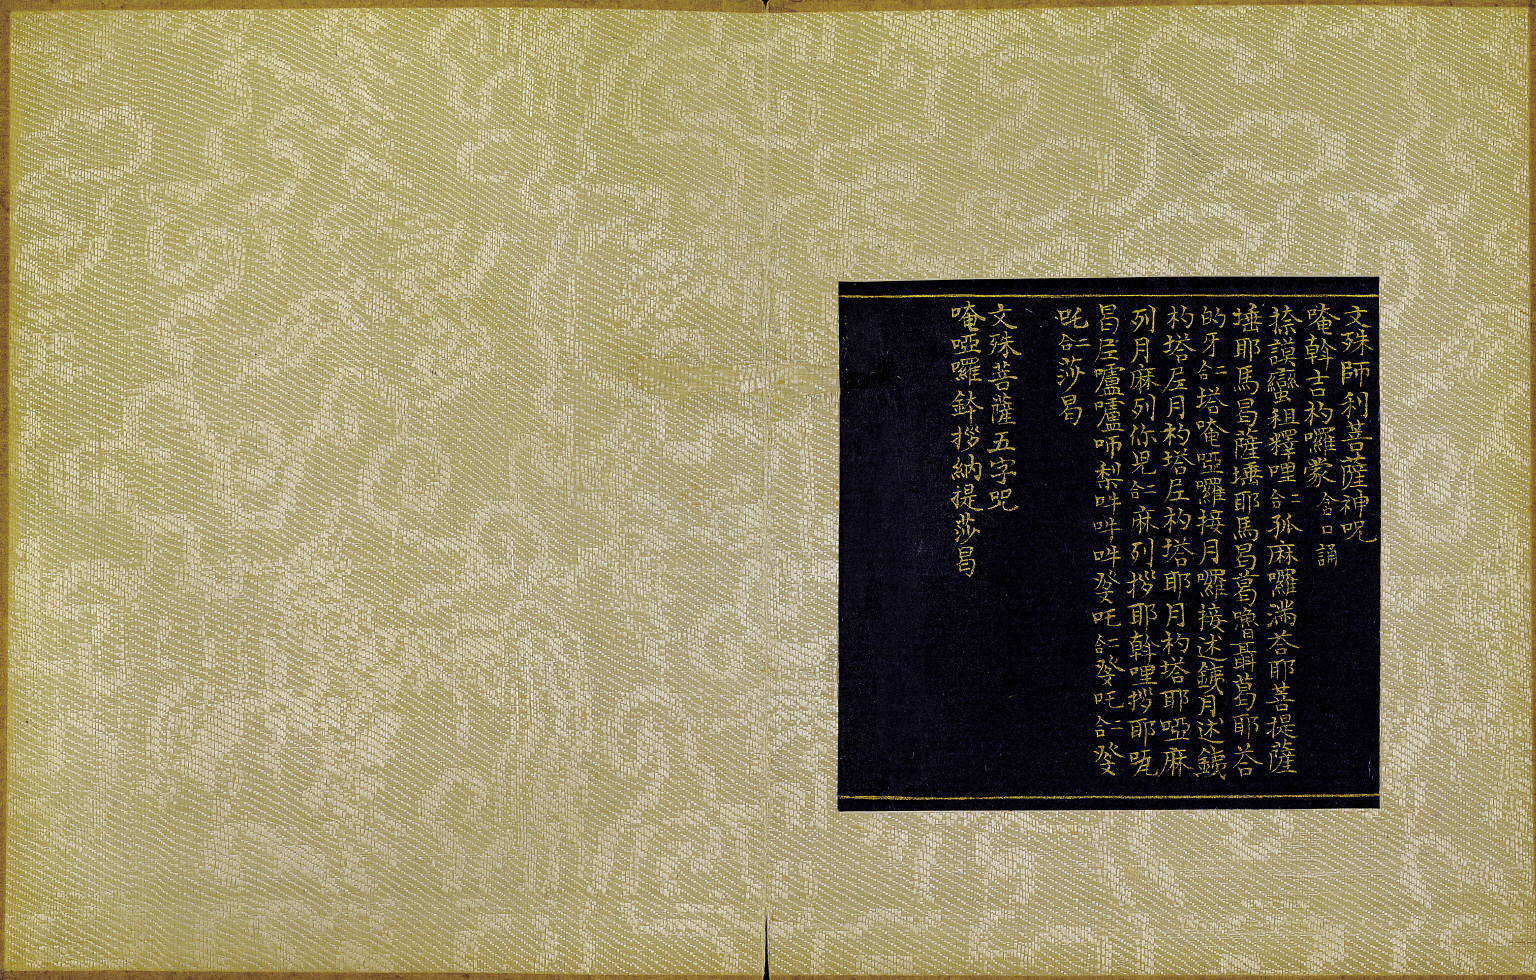 文殊師利菩薩神呪
唵斡吉杓囉蒙含口誦
捺謨蠻祖釋哩二合孤麻囉潵荅耶菩提薩
埵耶馬曷薩埵耶馬曷葛嚕聶葛耶荅
的牙二合塔唵啞囉接月囉接述錢月述錢
杓塔㞐月杓塔㞐杓塔耶月杓塔耶啞麻
列月麻列你皃二合麻列拶耶斡哩拶耶呪
曷㞐嚧嚧呬梨吽吽吽癹吒二合癹吒二合癹
吒二合莎曷
文殊菩薩五字呪
唵啞囉鉢拶納提莎曷